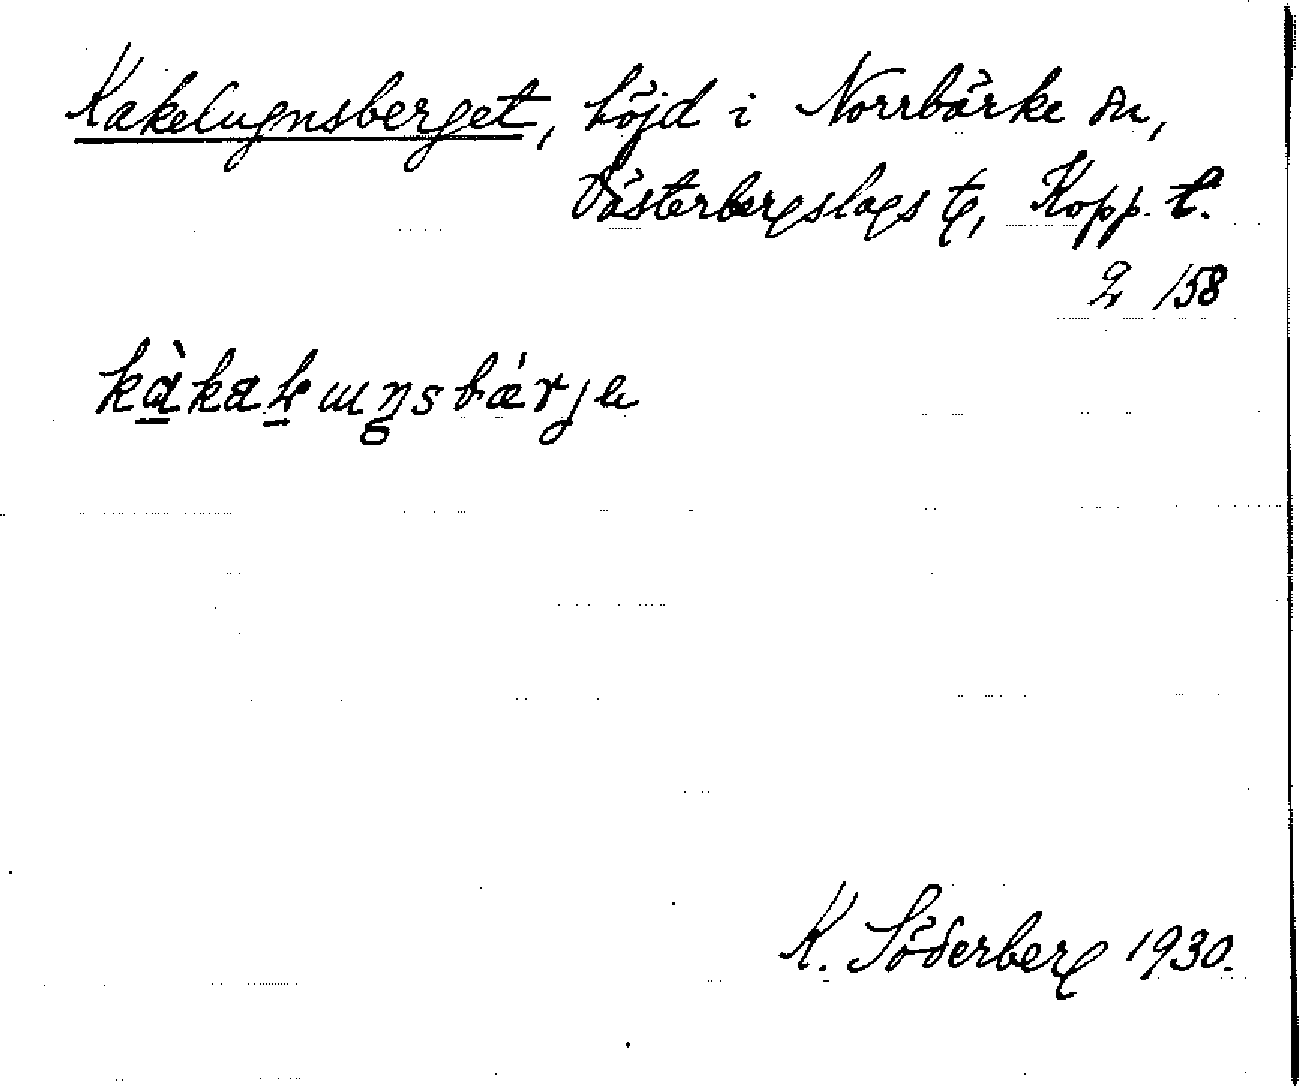 Kakelugnsberget, höjd i Norrbärke sn,
Västerbergslags tg, Kopp. l.
2 158
kàkaḷuŋnsbǽrjə
K. Söderberg 1930.